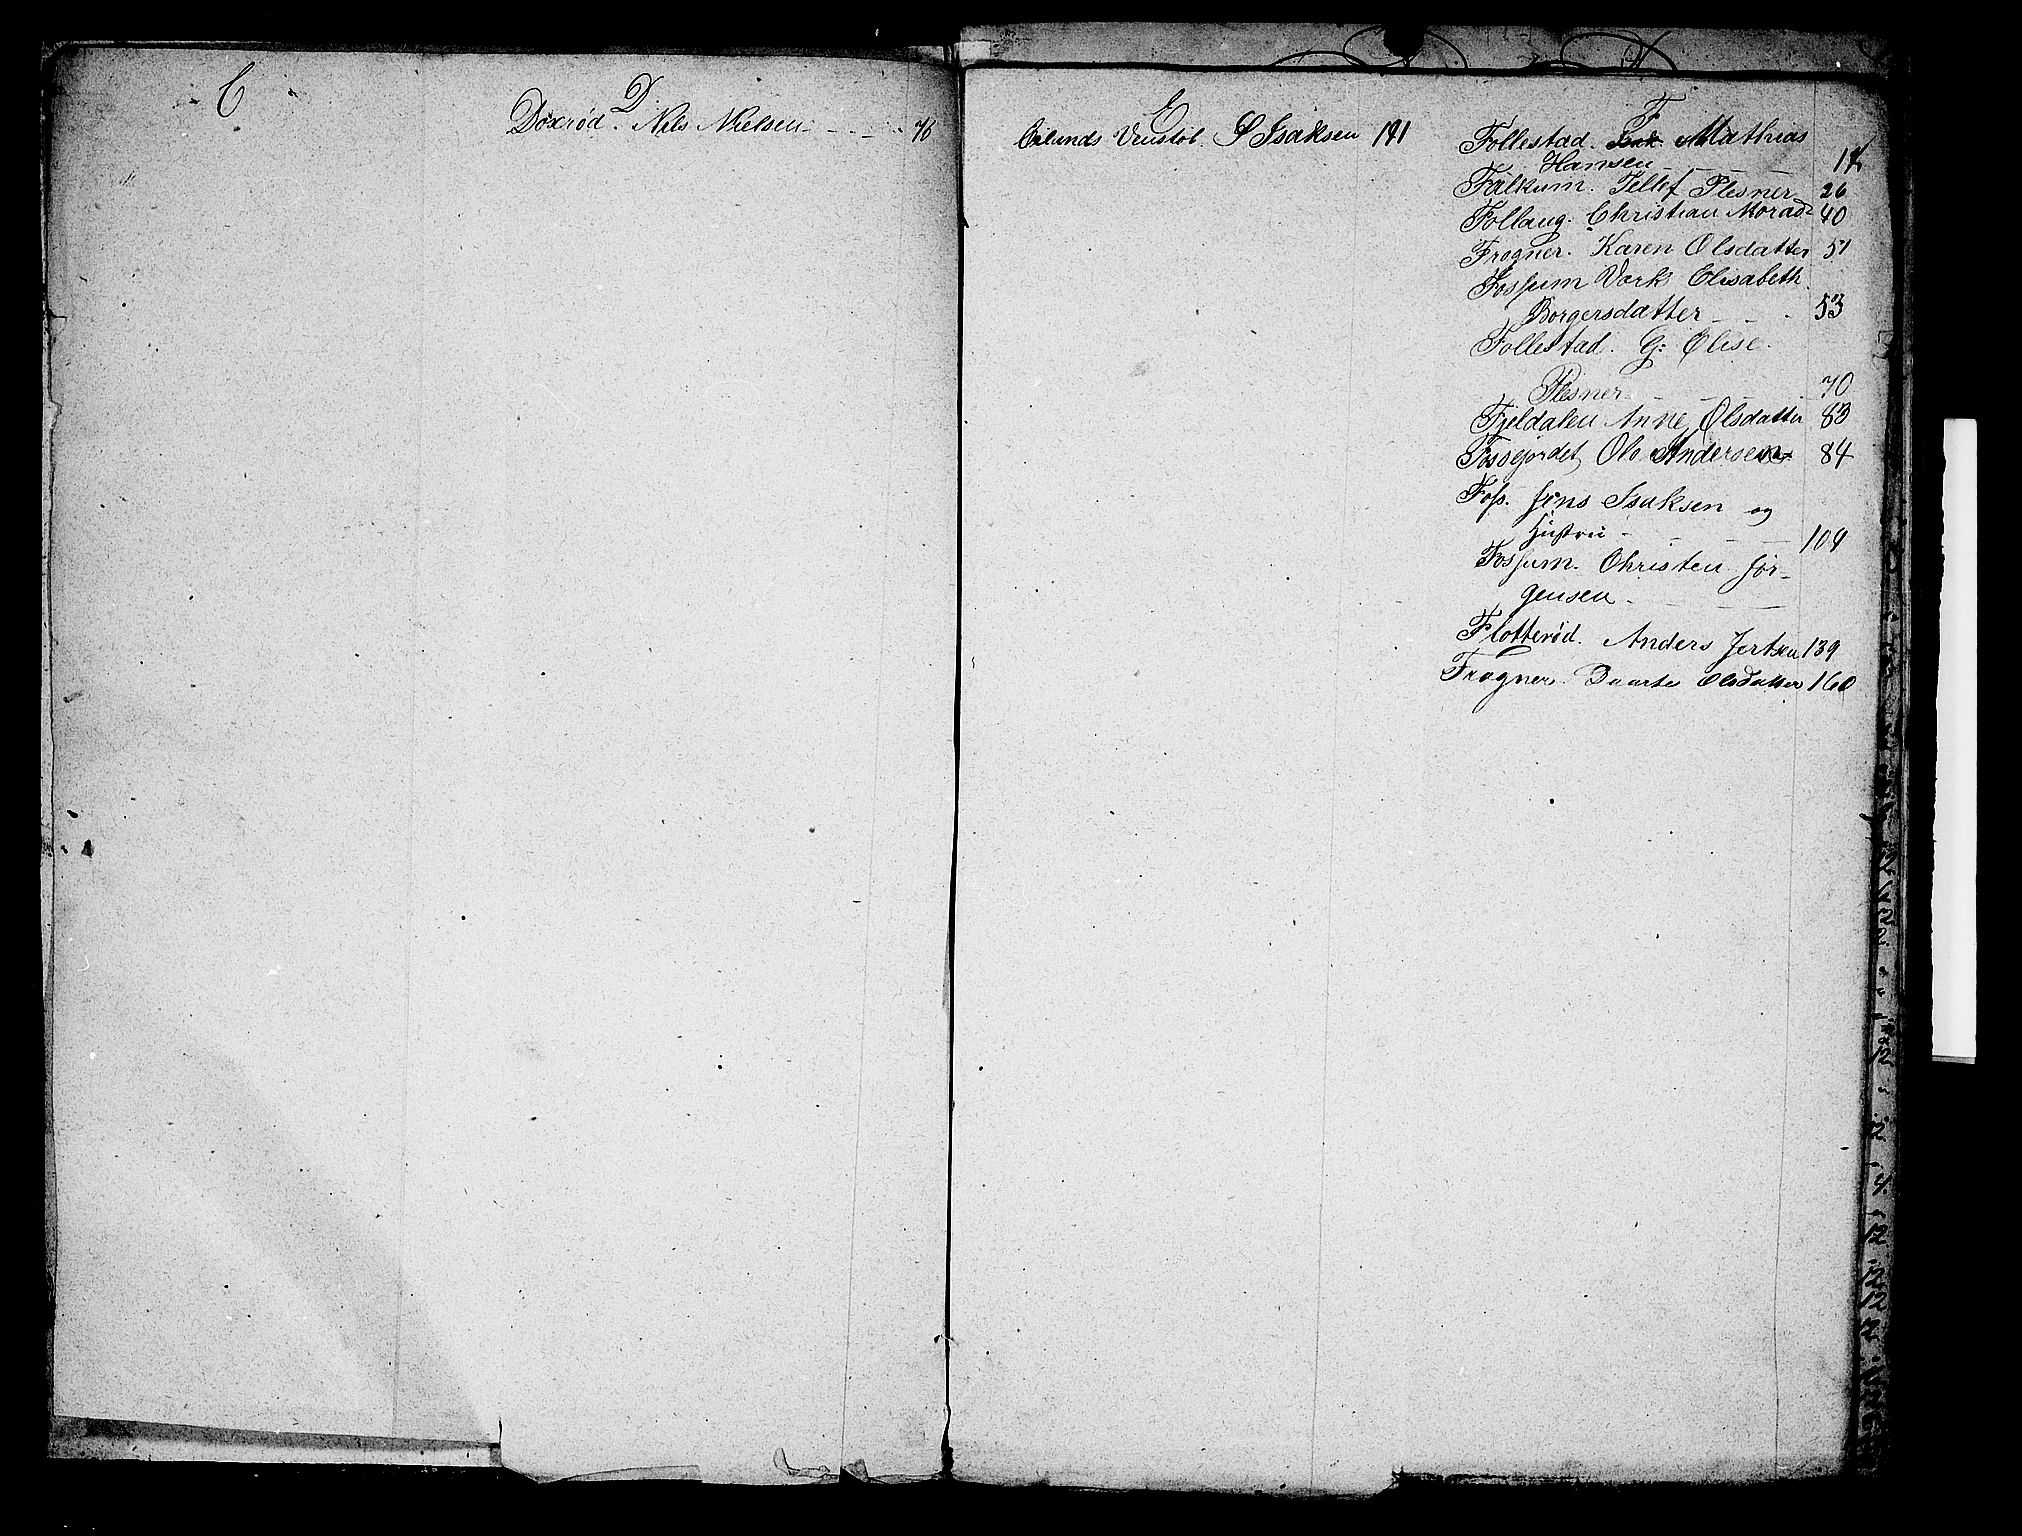 C
D
Doxrød. Nils Nielsen - - - - 76
E
Eilunds Venstøb. S Isaksen 141
F
Follestad. Mathias
Hansen - - - 14
Falkum. Tellef Plesner 26
Follaug. Christian Morads 40
Frogner. Karen Olsdatter 51
Fossum Værk Elisabeth
Borgersdatter - - - 53
Follestad. G: Elise.
Plesner - - - 70
Fjeldalen Anne Olsdatter 83
Fossejordet, Ole Andersen 84
Foss. Jens Isaksen og
Hustru - - - - 109
Fossum. Christen Jør-
gensen - - - -
Flotterød. Anders Jertsen 139
Frogner. Daarte Olsdatter 160